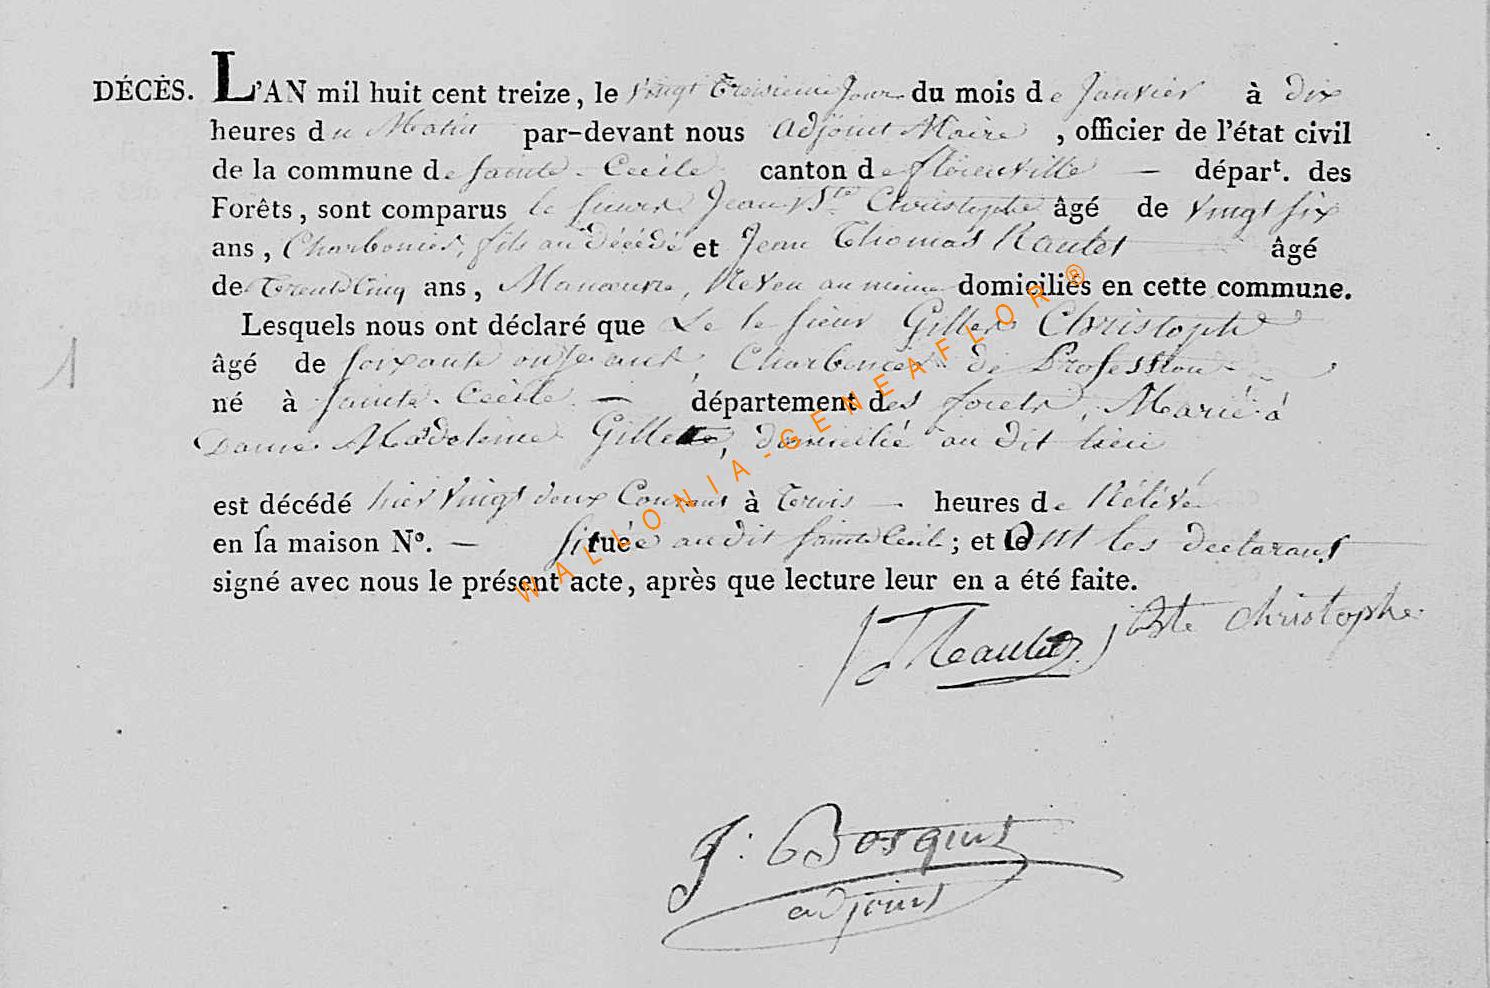 DÉCÈS. L'AN mil huit cent treize, le vingt troisieme jour du mois de Janvier à dix
heures du Matin par-devant nous adjoint Maire, officier de l'état civil
de la commune de Sainte-Cecile canton de florenville — départ. des
Forêts, sont comparus le sieur Jean Bte Christophe âgé de vingt six
ans, Charbonier, fils au décédé et Jean Thomas Raulet âgé
de Trente Cinq ans, Manoeuvre, Neveu au meme domiciliés en cette commune.
Lesquels nous ont déclaré que Le le sieur Gillet Christophe
1
âgé de soixante onze ans, Charbonier de Profession
né à Sainte-Cecile — département des forets, Marié à
Dame Madeleine Gillet, domicilié au dit lieu
est décédé hier vingt deux Courant à trois — heures de Rélevée
en sa maison N°. — située au dit Sainte Cecile; et ont les declarans
signé avec nous le présent acte, après que lecture leur en a été faite.
JTRaulet j Bte christophe
J: Bosquet
adjoint
WALLONIA-GENEAFLOR®